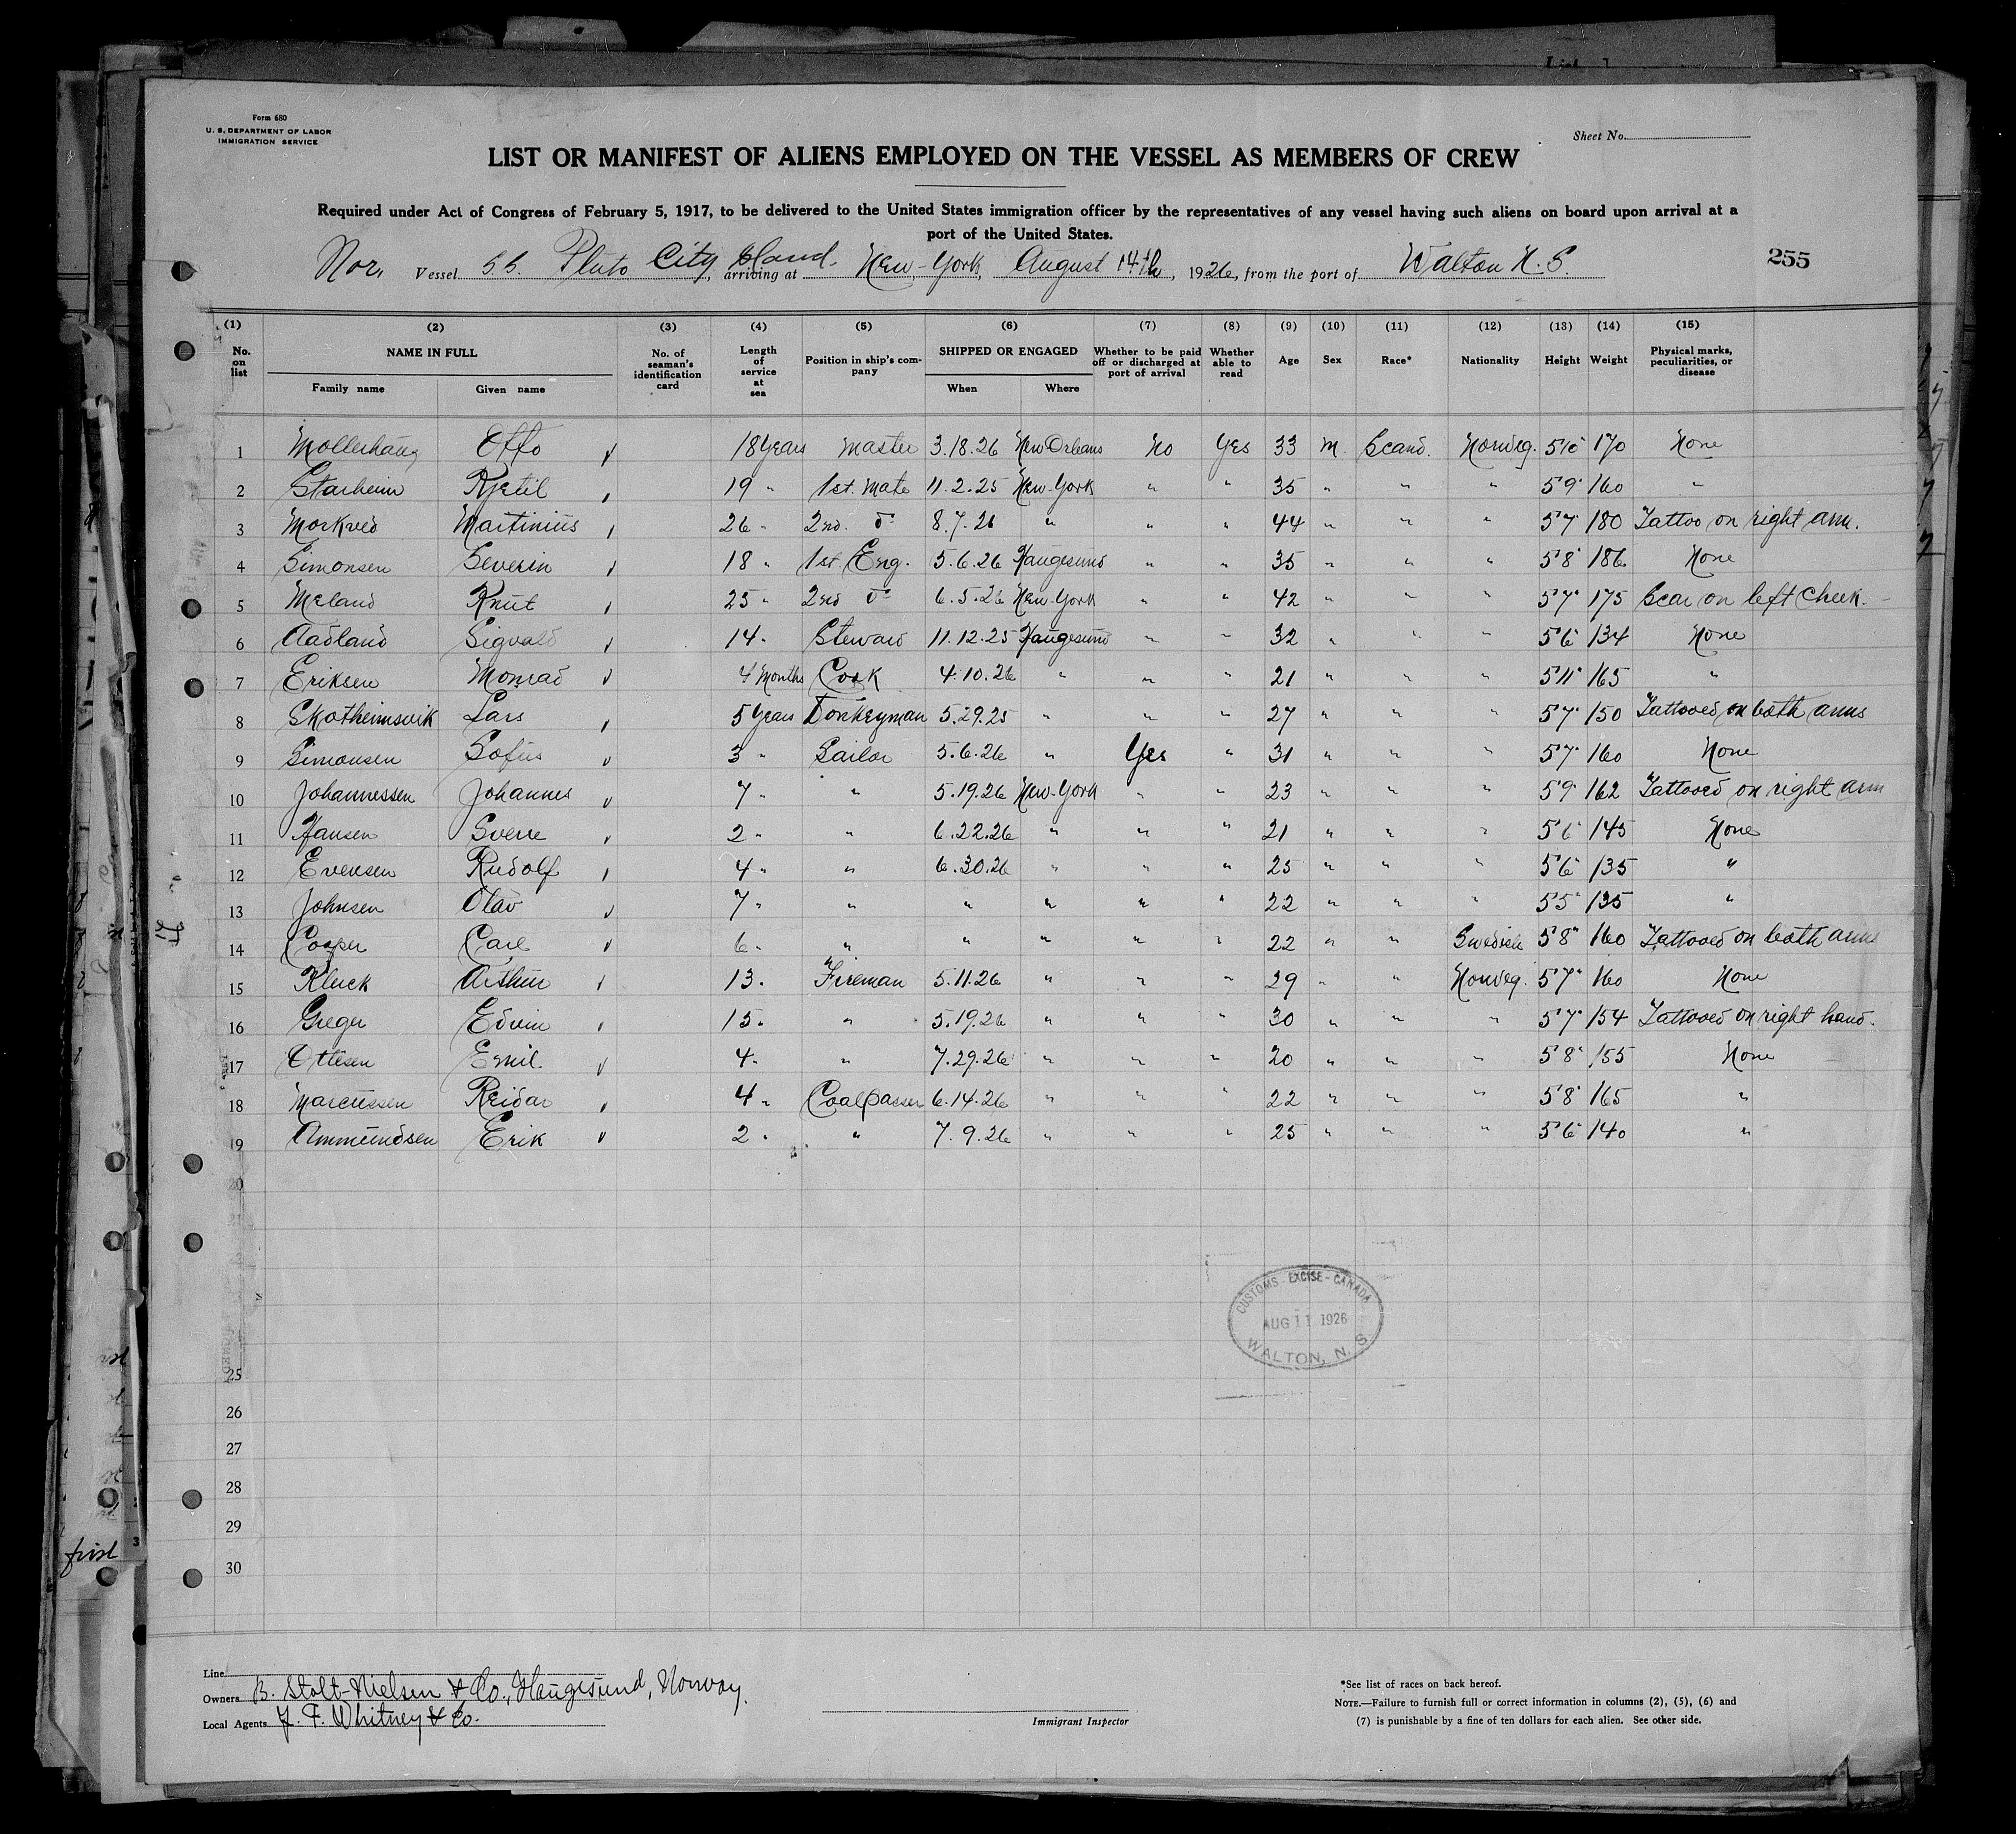 Form 680
U. S. DEPARTMENT OF LABOR
IMMIGRATION SERVICE
Sheet No.
LIST OR MANIFEST OF ALIENS EMPLOYED ON THE VESSEL AS MEMBERS OF CREW
Required under Act of Congress of February 5, 1917, to be delivered to the United States immigration officer by the representatives of any vessel having such aliens on board upon arrival at a
port of the United States.
Nor. Vessel S.S. Pluto City Island, arriving at New-York, August 14th, 1926, from the port of Walton N.S.
255
(1) (2) (3) (4) (5) (6) (7) (8) (9) (10) (11) (12) (13) (14) (15)
No. on list NAME IN FULL Family name Given name No. of seaman's identification card Length of service at sea Position in ship's company SHIPPED OR ENGAGED When Where Whether to be paid off or discharged at port of arrival Whether able to read Age Sex Race* Nationality Height Weight Physical marks, peculiarities, or disease
1 Mollerhaug Otto 18 years Master 3.18.26 New Orleans No Yes 33 M. Scand. Norweg. 5'10" 170 None
2 Starheim Kjetil 19 " 1st. Mate 11.2.25 New-York " " 35 " " " 5'9" 160 "
3 Morkved Martinius 26 " 2nd. do 8.7.26 " " " 44 " " " 5'7" 180 Tattoo on right arm.
4 Simonsen Severin 18 " 1st. Eng. 5.6.26 Haugesund " " 35 " " " 5'8" 186 None
5 Meland Knut 25 " 2nd do 6.5.26 New-York " " 42 " " " 5'7" 175 Scar on left cheek.
6 Aadland Sigvald 14 " Steward 11.12.25 Haugesund " " 32 " " " 5'6" 134 None
7 Eriksen Monrad 4 Months Cook 4.10.26 " " " 21 " " " 5'11" 165 "
8 Skotheimsvik Lars 5 years Donkeyman 5.29.25 " " " 27 " " " 5'7" 150 Tattooed on both arms
9 Simonsen Sofus 3 " Sailor 5.6.26 " Yes " 31 " " " 5'7" 160 None
10 Johannessen Johannes 7 " " 5.19.26 New-York " " 23 " " " 5'9" 162 Tattooed on right arm
11 Hansen Sverre 2 " " 6.22.26 " " " 21 " " " 5'6" 145 None
12 Evensen Rudolf 4 " " 6.30.26 " " " 25 " " " 5'6" 135 "
13 Johnsen Olav 7 " " " " " " 22 " " " 5'5" 135 "
14 Cooper Carl 6 " " " " " " 22 " " Swedish 5'8" 160 Tattooed on both arms
15 Kluck Arthur 13 " Fireman 5.11.26 " " " 29 " " Norweg. 5'7" 160 None
16 Greger Edvin 15 " " 5.19.26 " " " 30 " " " 5'7" 154 Tattooed on right hand.
17 Ottesen Emil 4 " " 7.29.26 " " " 20 " " " 5'8" 155 None
18 Marcussen Reidar 4 " Coal Passer 6.14.26 " " " 22 " " " 5'8" 165 "
19 Ammundsen Erik 2 " " 7.9.26 " " " 25 " " " 5'6" 140 "
20
21
25
26
27
28
29
30
CUSTOMS - EXCISE - CANADA
AUG 11 1926
WALTON, N. S.
first
Line
Owners B. Stolt-Nielsen & Co., Haugesund, Norway.
Local Agents J. F. Whitney & Co.
Immigrant Inspector
*See list of races on back hereof.
NOTE.—Failure to furnish full or correct information in columns (2), (5), (6) and
(7) is punishable by a fine of ten dollars for each alien. See other side.